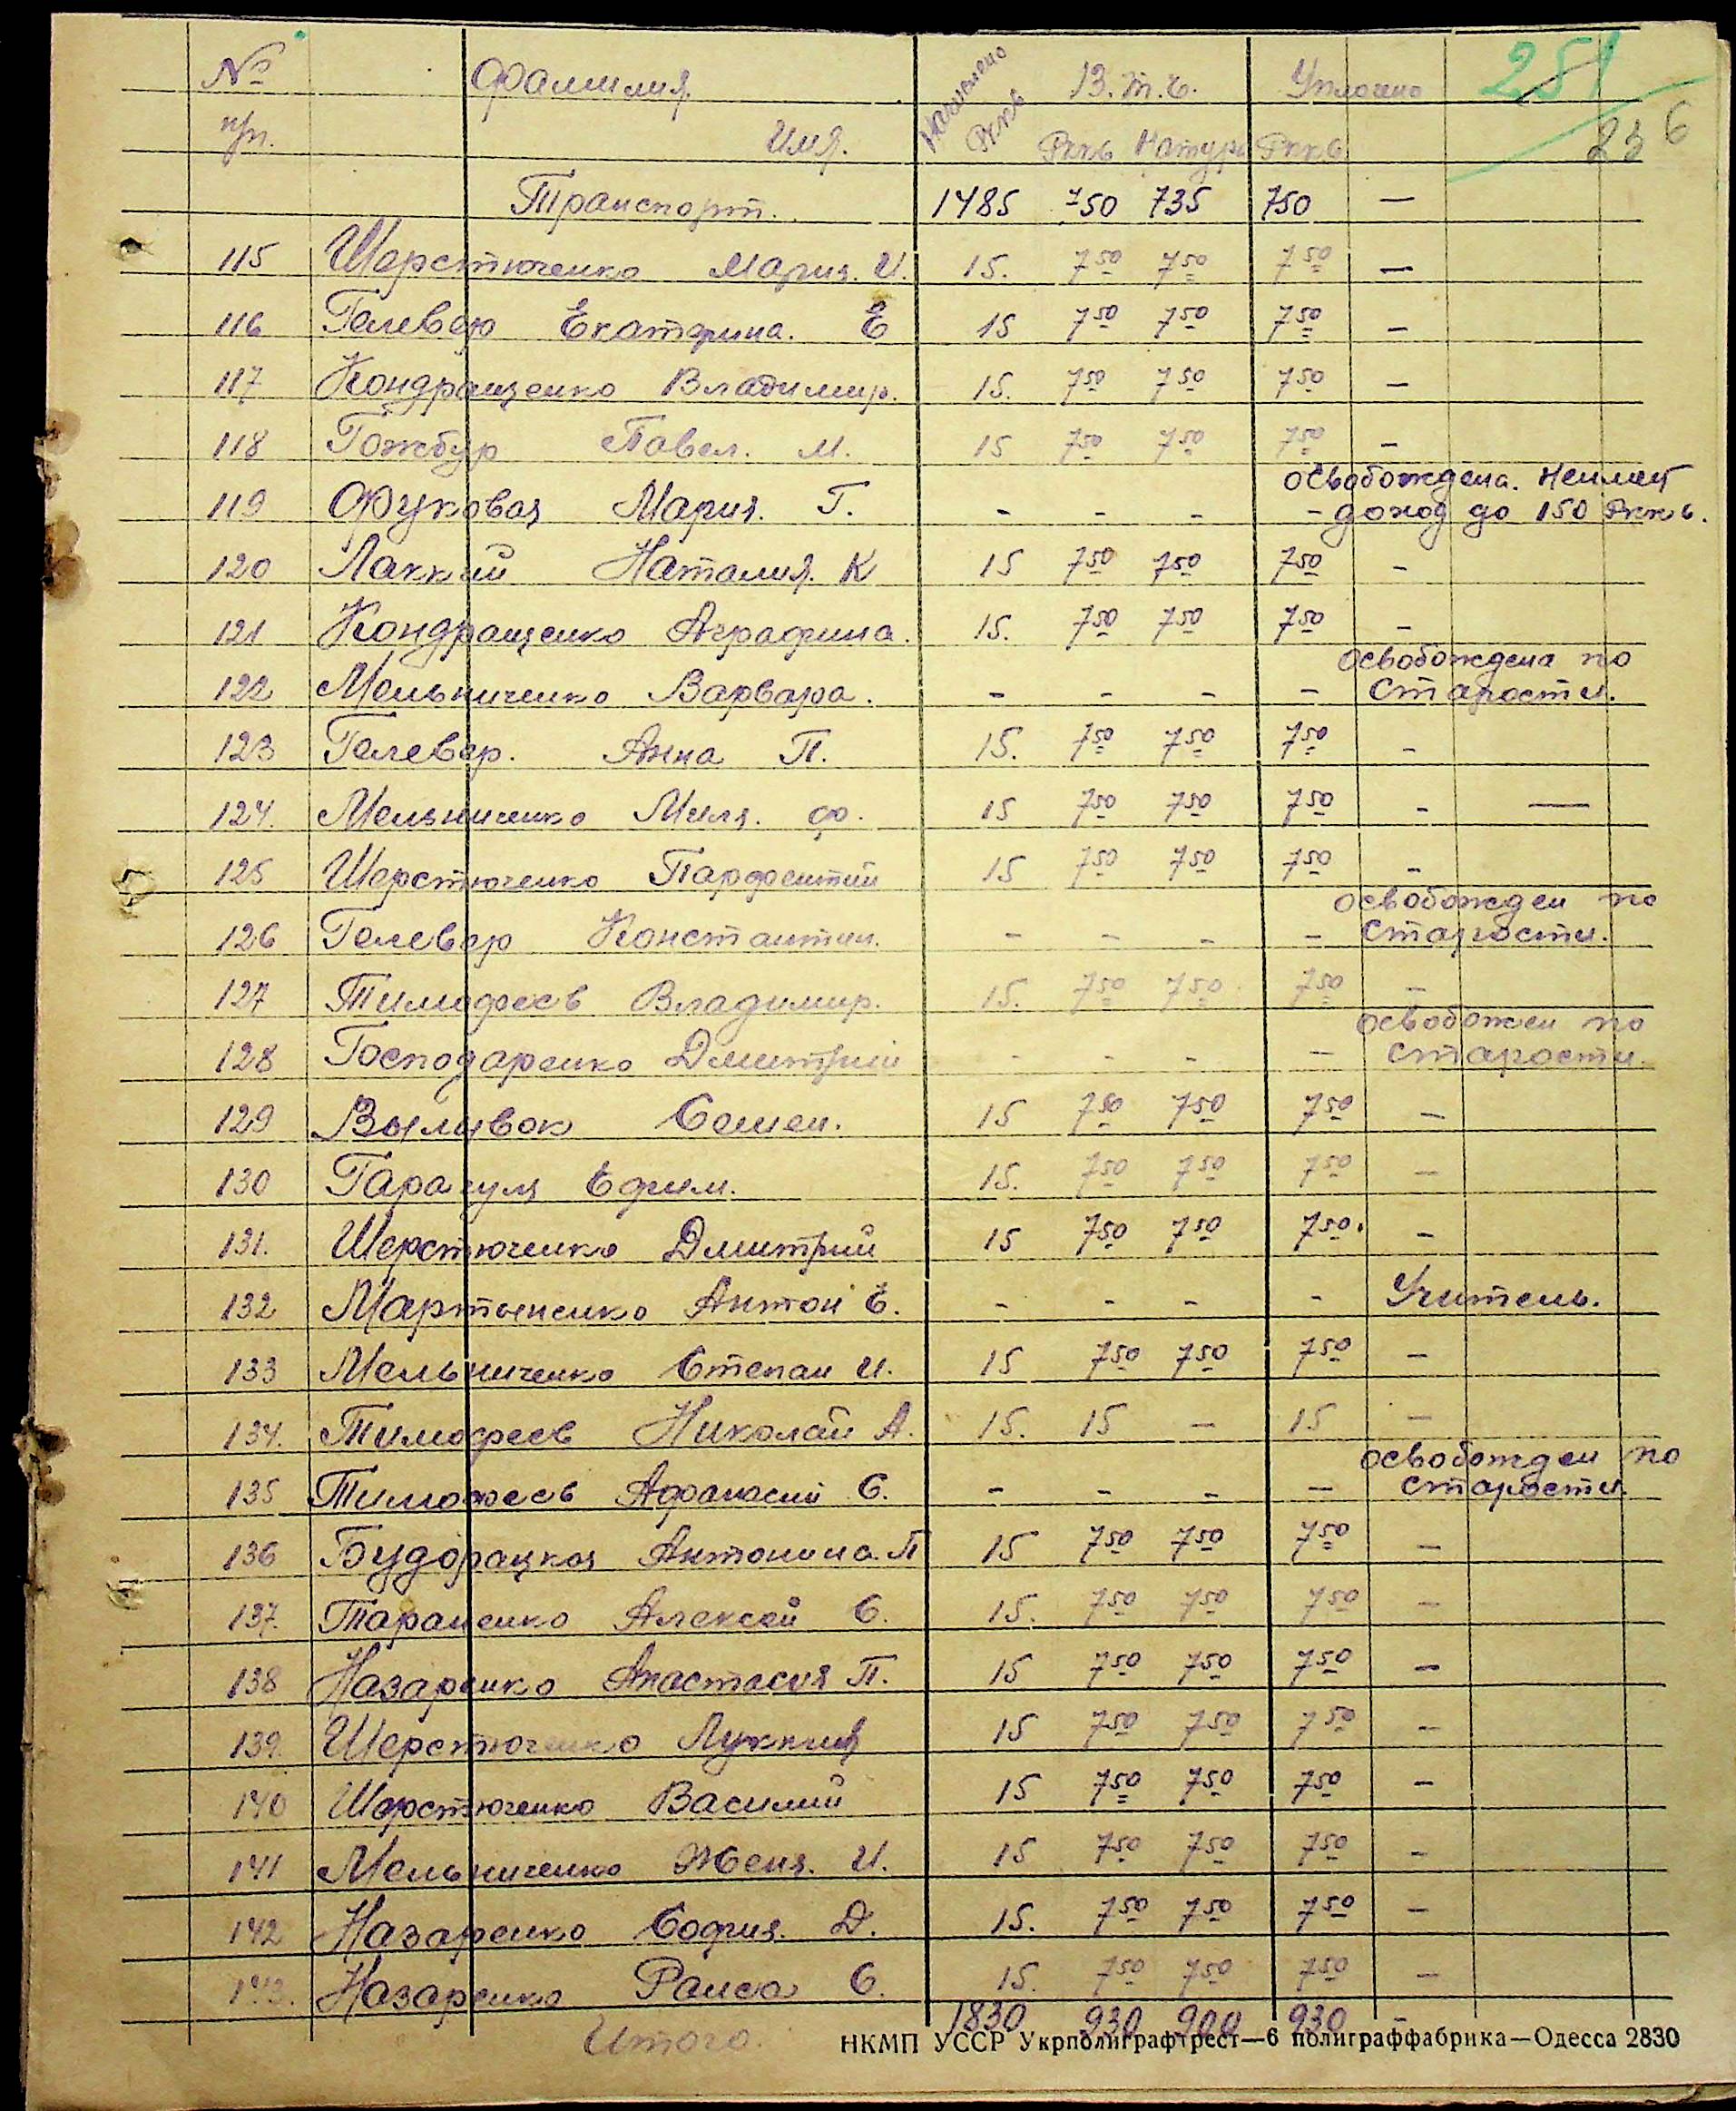 № Фамилия. Начислено В. т. ч. Уплочено 251
п/п. Имя. Рккв Ркчв Натура Ркка 236
Транспорт. 1485 750 735 750 —
115 Шерстюченко Мария. И. 15. 7 50 7 50 7 50 —
116 Гелевер Екатерина. Е 15 7 50 7 50 7 50 —
117 Кондращенко Владимир. 15. 7 50 7 50 7 50 —
118 Гожбур Павел. М. 15 7 50 7 50 7 50 —
освобождена. Неимеет
119 Фуковая Мария. Г. - - - - доход до 150 Ркка.
120 Лаккий Наталия. К 15 7 50 7 50 7 50 -
121 Кондращенко Аграфина. 15. 7 50 7 50 7 50 -
освобождена по
122 Мельниченко Варвара. - - - - старости.
123 Гелевер. Анна П. 15. 7 50 7 50 7 50 -
124. Мельниченко Миля. Ф. 15 7 50 7 50 7 50 - —
125 Шерстюченко Парфентий 15 7 50 7 50 7 50 -
освобожден по
126 Гелевер Константин. - - - - старости.
127 Тимофеев Владимир. 15. 7 50 7 50 7 50 -
освобожен по
128 Господаренко Дмитрий - - - - старости.
129 Выливок Семен. 15 7 50 7 50 7 50 -
130 Гарагуля Ефим. 15. 7 50 7 50 7 50 -
131. Шерстюченко Дмитрий 15 7 50 7 50 7 50. -
132 Мартыненко Антон Е. - - - - Учитель.
133 Мельниченко Степан И. 15 7 50 7 50 7 50 -
134. Тимофеев Николай А. 15. 15 — 15 —
освобожден по
135 Тимофеев Афанасий С. - - - - старости.
136 Будорацкая Антонина. П 15 7 50 7 50 7 50 -
137. Тараненко Алексей С. 15. 7 50 7 50 7 50 -
138 Назаренко Анастасия П. 15 7 50 7 50 7 50 -
139. Шерстюченко Луккия 15 7 50 7 50 7 50 -
140 Шерстюченко Василий 15 7 50 7 50 7 50 -
141 Мельниченко Женя. И. 15 7 50 7 50 7 50 -
142 Назаренко София. Д. 15. 7 50 7 50 7 50 -
143. Назаренко Раиса С. 15. 7 50 7 50 7 50 -
Итого. 1830 930 900 930 -
НКМП УССР Укрполиграфтрест—6 полиграффабрика—Одесса 2830